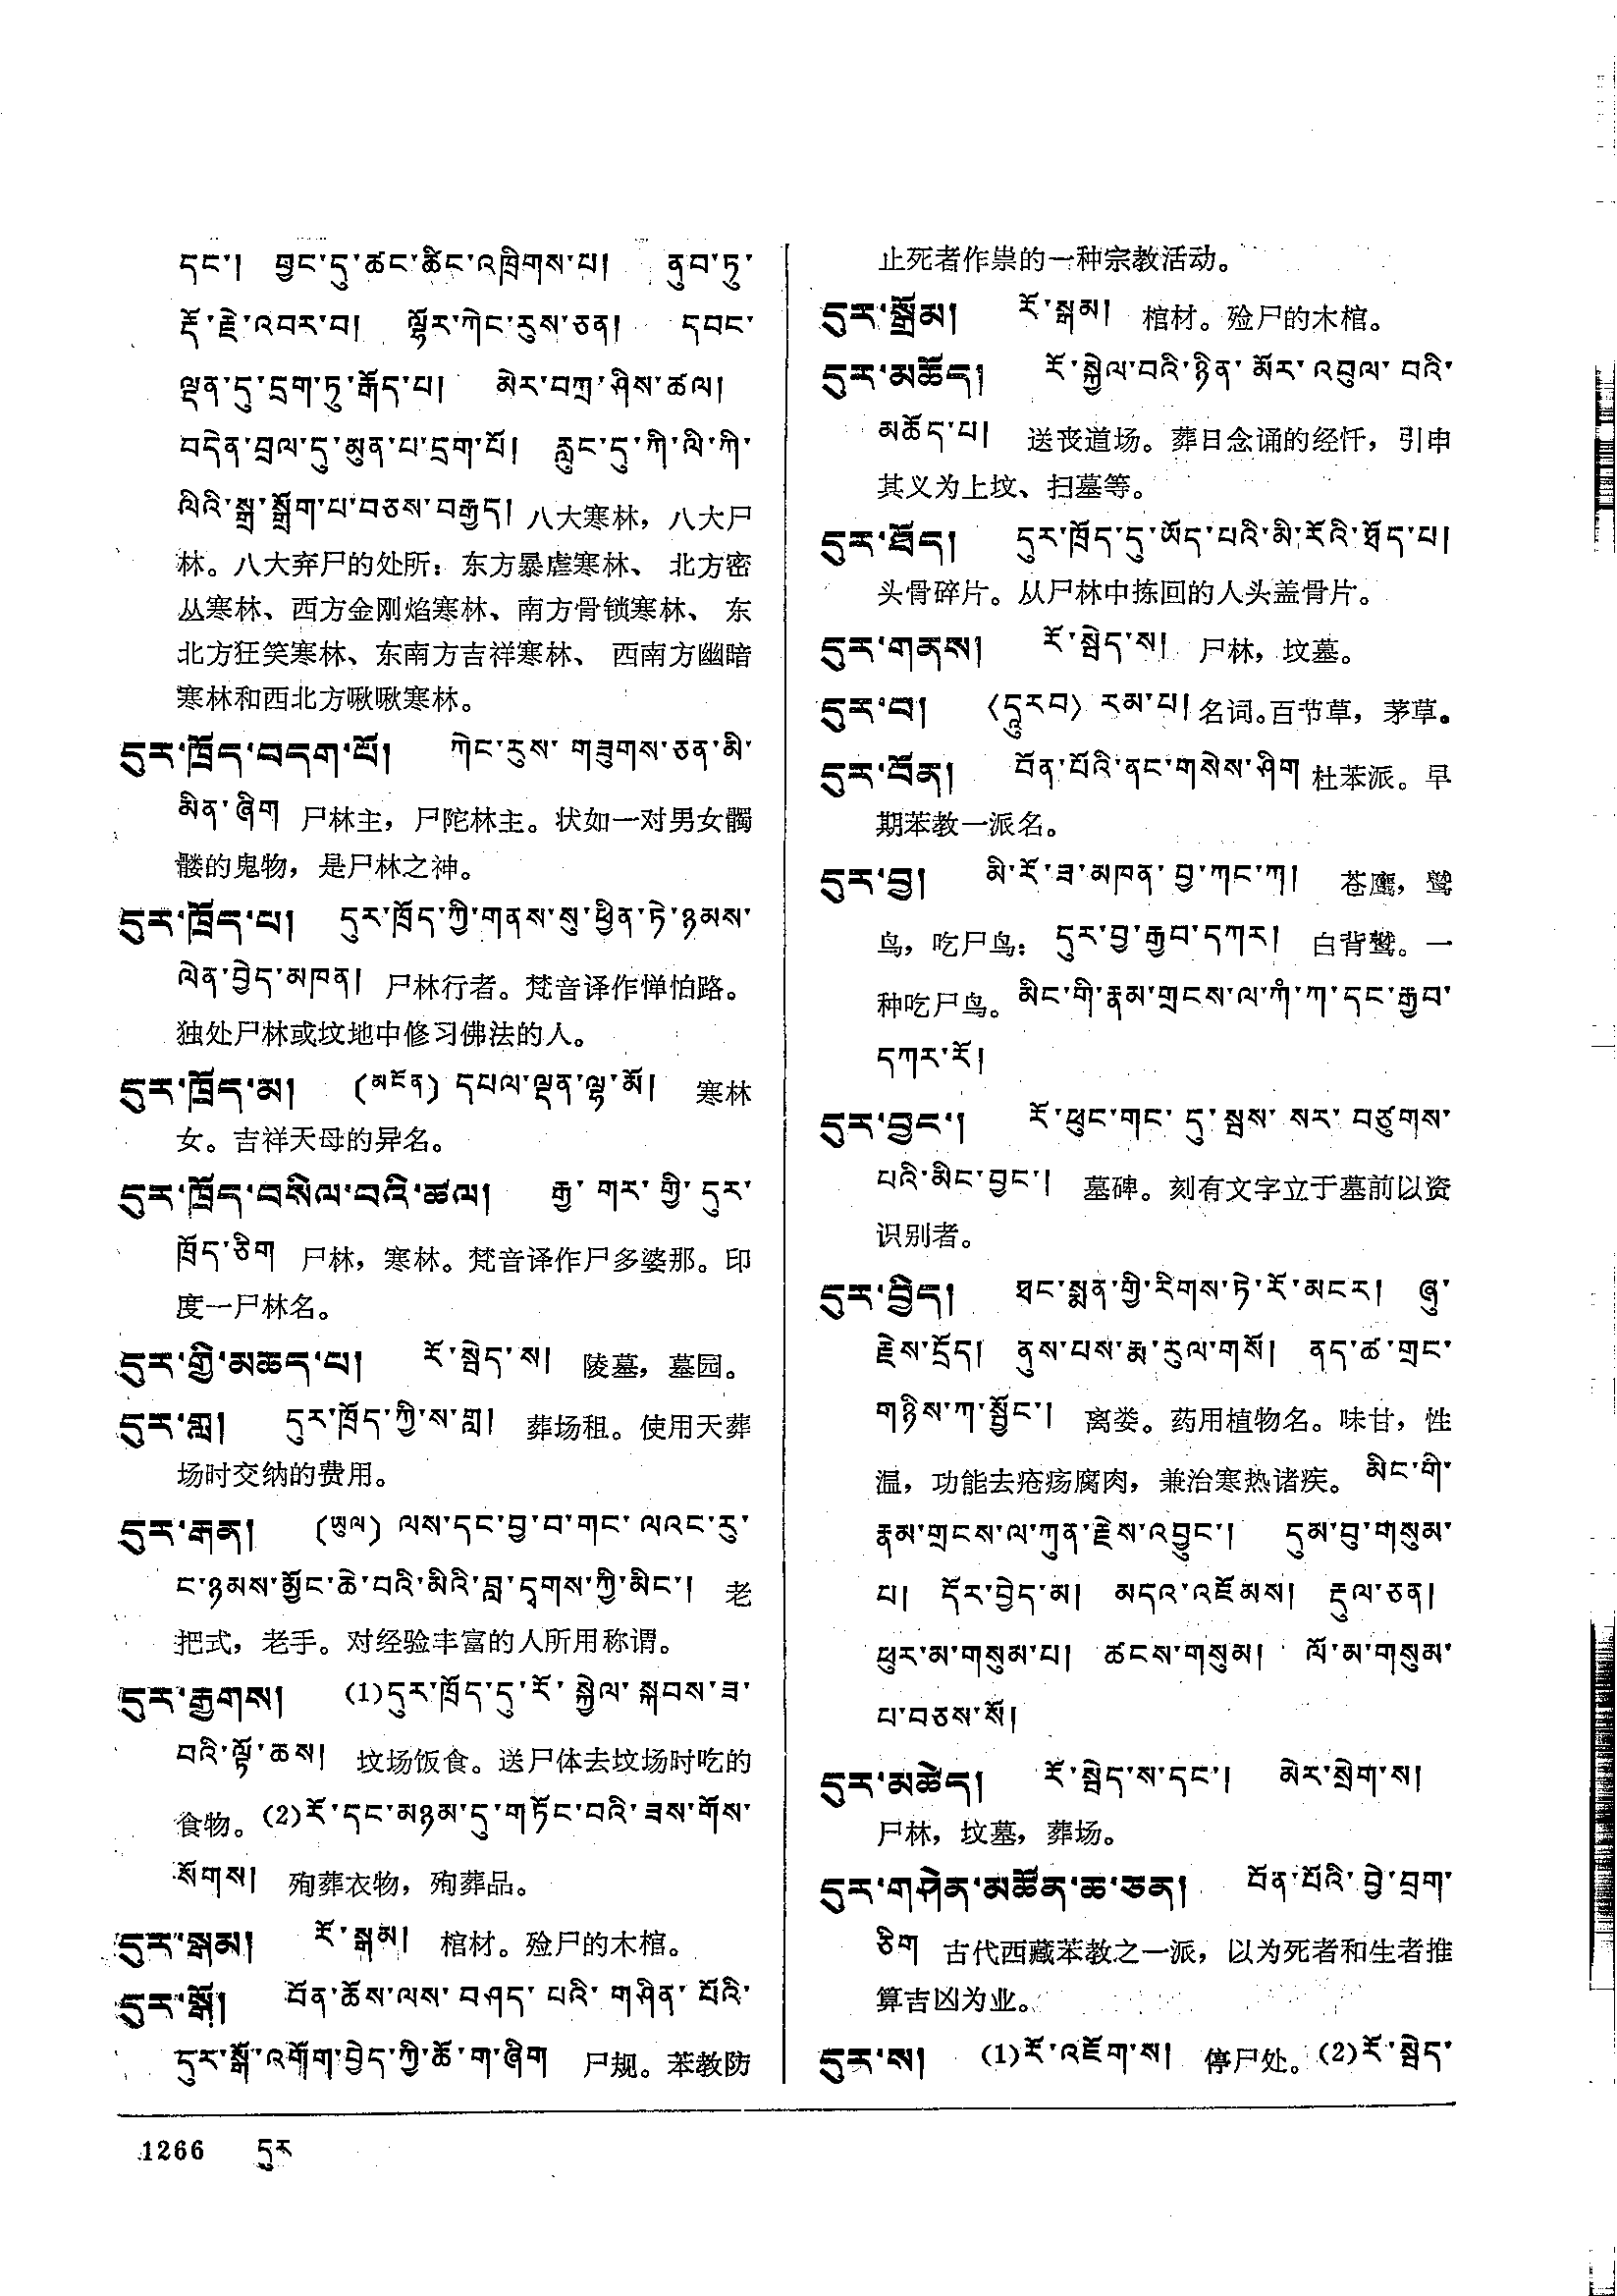 དང་། བྱང་དུ་ཚང་ཚིང་འཁྲིགས་པ། ནུབ་ཏུ་
རྡོ་རྗེ་འབར་བ། ལྷོར་ཀེང་རུས་ཅན། དབང་
ལྡན་དུ་དྲག་ཏུ་རྒོད་པ། མེར་བཀྲ་ཤིས་ཚལ།
བདེན་བྲལ་དུ་མུན་པ་དྲག་པོ། རླུང་དུ་ཀི་ལི་ཀི་
ལིའི་སྒྲ་སྒྲོག་པ་བཅས་བརྒྱད། 八大寒林，八大尸
林。八大弃尸的处所：东方暴虐寒林、北方密
丛寒林、西方金刚焰寒林、南方骨锁寒林、东
北方狂笑寒林、东南方吉祥寒林、西南方幽暗
寒林和西北方啾啾寒林。
དུར་ཁྲོད་བདག་པོ། ཀེང་རུས་གཟུགས་ཅན་མི་
མིན་ཞིག 尸林主，尸陀林主。状如一对男女髑
髅的鬼物，是尸林之神。
དུར་ཁྲོད་པ། དུར་ཁྲོད་ཀྱི་གནས་སུ་ཕྱིན་ཏེ་ཉམས་
ལེན་བྱེད་མཁན། 尸林行者。梵音译作惮怕路。
独处尸林或坟地中修习佛法的人。
དུར་ཁྲོད་མ། (མངོན) དཔལ་ལྡན་ལྷ་མོ། 寒林
女。吉祥天母的异名。
དུར་ཁྲོད་བསིལ་བའི་ཚལ། རྒྱ་གར་གྱི་དུར་
ཁྲོད་ཅིག 尸林，寒林。梵音译作尸多婆那。印
度一尸林名。
དུར་གྱི་མཆད་པ། རོ་སྦེད་ས། 陵墓，墓园。
དུར་གླ། དུར་ཁྲོད་ཀྱི་ས་གླ། 葬场租。使用天葬
场时交纳的费用。
དུར་རྒན། (ཡུལ) ལས་དང་བྱ་བ་གང་ལའང་རུ་
ང་ཉམས་མྱོང་ཆེ་བའི་མིའི་བླ་དྭགས་ཀྱི་མིང་། 老
把式，老手。对经验丰富的人所用称谓。
དུར་རྒྱགས། (1)དུར་ཁྲོད་དུ་རོ་སྐྱེལ་སྐབས་ཟ་
བའི་ལྟོ་ཆས། 坟场饭食。送尸体去坟场时吃的
食物。(2)རོ་དང་མཉམ་དུ་གཏོང་བའི་ཟས་གོས་
སོགས། 殉葬衣物，殉葬品。
དུར་སྒམ། རོ་སྒམ། 棺材。殓尸的木棺。
དུར་སྒོ། བོན་ཆོས་ལས་བཤད་པའི་གཤིན་པོའི་
དུར་སྒོ་འགོག་བྱེད་ཀྱི་ཆོ་ག་ཞིག 尸规。苯教防
止死者作祟的一种宗教活动。
དུར་སྒྲོམ། རོ་སྒམ། 棺材。殓尸的木棺。
དུར་མཆོད། རོ་སྐྱེལ་བའི་ཉིན་མོར་འབུལ་བའི་
མཆོད་པ། 送丧道场。葬日念诵的经忏，引申
其义为上坟、扫墓等。
དུར་ཐོད། དུར་ཁྲོད་དུ་ཡོད་པའི་མི་རོའི་ཐོད་པ།
头骨碎片。从尸林中拣回的人头盖骨片。
དུར་གནས། རོ་སྦེད་ས། 尸林，坟墓。
དུར་བ། (དཱུརབ) རམ་པ། 名词。百节草，茅草。
དུར་བོན། བོན་པོའི་ནང་གསེས་ཤིག 杜苯派。早
期苯教一派名。
དུར་བྱ། མི་རོ་ཟ་མཁན་བྱ་ཀང་ཀ། 苍鹰，鹫
鸟，吃尸鸟：དུར་བྱ་རྒྱབ་དཀར། 白背鹫。一
种吃尸鸟。མིང་གི་རྣམ་གྲངས་ལ་ཀཾ་ཀ་དང་རྒྱབ་
དཀར་རོ།
དུར་བྱང་། རོ་ཕུང་གང་དུ་སྦས་སར་བཙུགས་
པའི་མིང་བྱང་། 墓碑。刻有文字立于墓前以资
识别者。
དུར་བྱིད། ཐང་སྨན་གྱི་རིགས་ཏེ་རོ་མངར། ཞུ་
རྗེས་དྲོད། ནུས་པས་རྨ་རུལ་གསོ། ནད་ཚ་གྲང་
གཉིས་ཀ་སྦྱོང་། 离娄。药用植物名。味甘，性
温，功能去疮疡腐肉，兼治寒热诸疾。མིང་གི་
རྣམ་གྲངས་ལ་ཀུན་རྗེས་འབྱུང་། དུམ་བུ་གསུམ་
པ། དོར་བྱེད་མ། མདའ་འཇོམས། རྡུལ་ཅན།
ཕུར་མ་གསུམ་པ། ཚངས་གསུམ། ལོ་མ་གསུམ་
པ་བཅས་སོ།
དུར་མཚེད། རོ་སྦེད་ས་དང་། མེར་སྲེག་ས།
尸林，坟墓，葬场。
དུར་གཤེན་མཚོན་ཆ་ཅན། བོན་པོའི་བྱེ་བྲག་
ཅིག 古代西藏苯教之一派，以为死者和生者推
算吉凶为业。
དུར་ས། (1)རོ་འཇོག་ས། 停尸处。(2)རོ་སྦེད་
1266 དུར